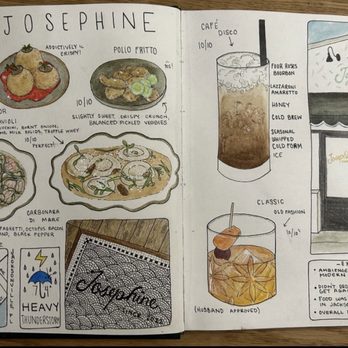 JOSEPHINE
ADDICTIVELY
CRISPY!
POLLO FRITTO
YES!
10/10
SLIGHTLY SWEET, CRISPY CRUNCH,
BALANCED PICKLED VEGGIES
RAVIOLI
BURNT ONION,
TRUFFLE WHEY
10/10
PERFECT!
CARBONARA
DI MARE
SPAGHETTI, OCTOPUS BACON
BLACK PEPPER
HEAVY
THUNDERSTORM
Josephine
SINCE
CAFÉ
DISCO
10/10
FOUR ROSES
BOURBON
LAZZARONI
AMARETTO
HONEY
COLD BREW
SEASONAL
WHIPPED
COLD FOAM
ICE
CLASSIC
OLD FASHION
10/10
(HUSBAND APPROVED)
Joseph
• AMBIENCE
MODERN
• DIDN'T
GET AGAI
• FOOD WAS
IN JACKSO
• OVERALL